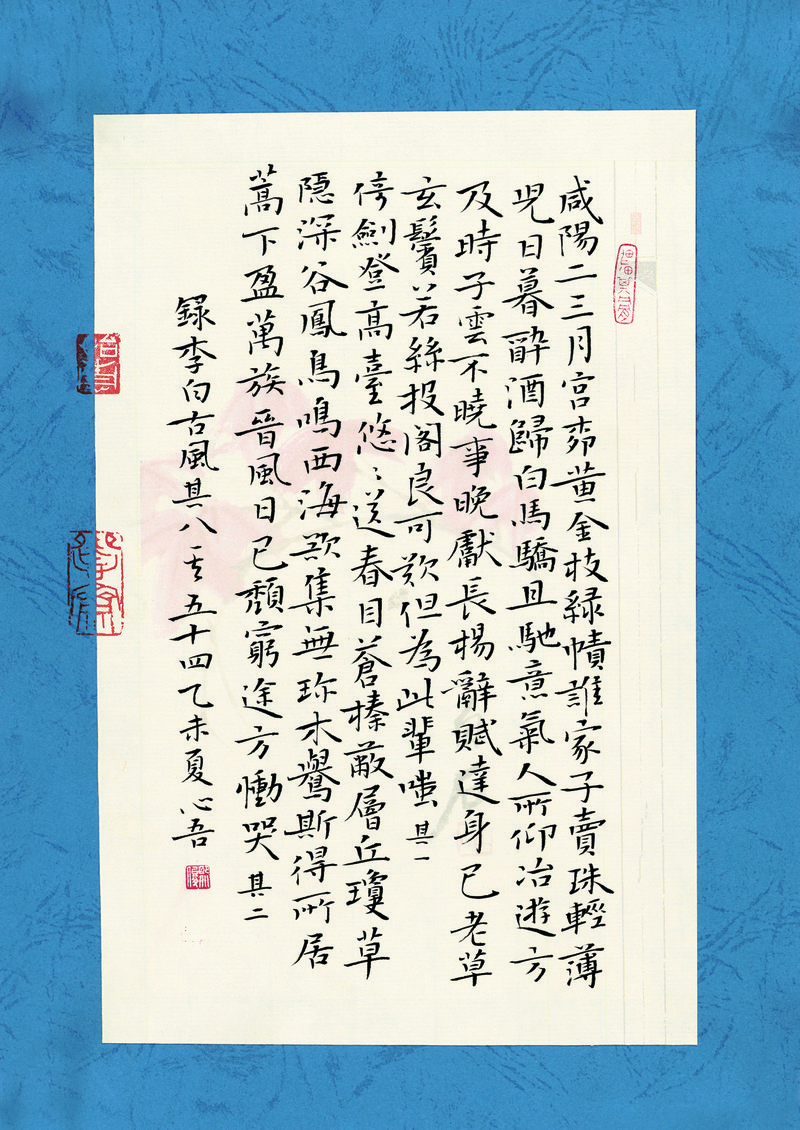 咸陽二三月宮柳黃金枝綠幘誰家子賣珠輕薄
兒日暮醉酒歸白馬驕且馳意氣人所仰冶遊方
及時子雲不曉事晚獻長楊辭賦達身已老草
玄鬢若絲投閣良可歎但為此輩嗤其一
倚劍登高臺悠〻送春目蒼榛蔽層丘瓊草
隱深谷鳳鳥鳴西海欲集無珍木鸒斯得所居
蒿下盈萬族晉風日已頹窮途方慟哭其二
錄李白古風其八其五十四乙未夏心吾